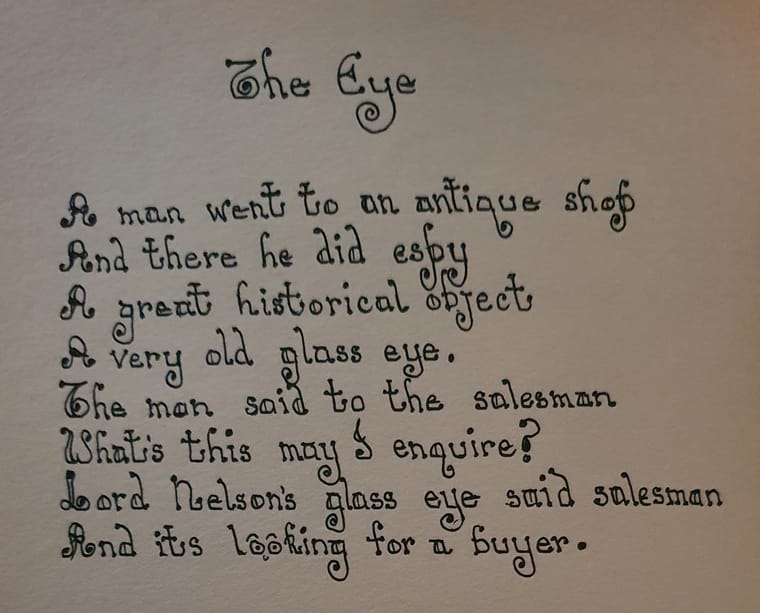 The Eye
A man went to an antique shop
And there he did espy
A great historical object
A very old glass eye.
The man said to the salesman
What's this may I enquire?
Lord Nelson's glass eye said salesman
And its looking for a buyer.